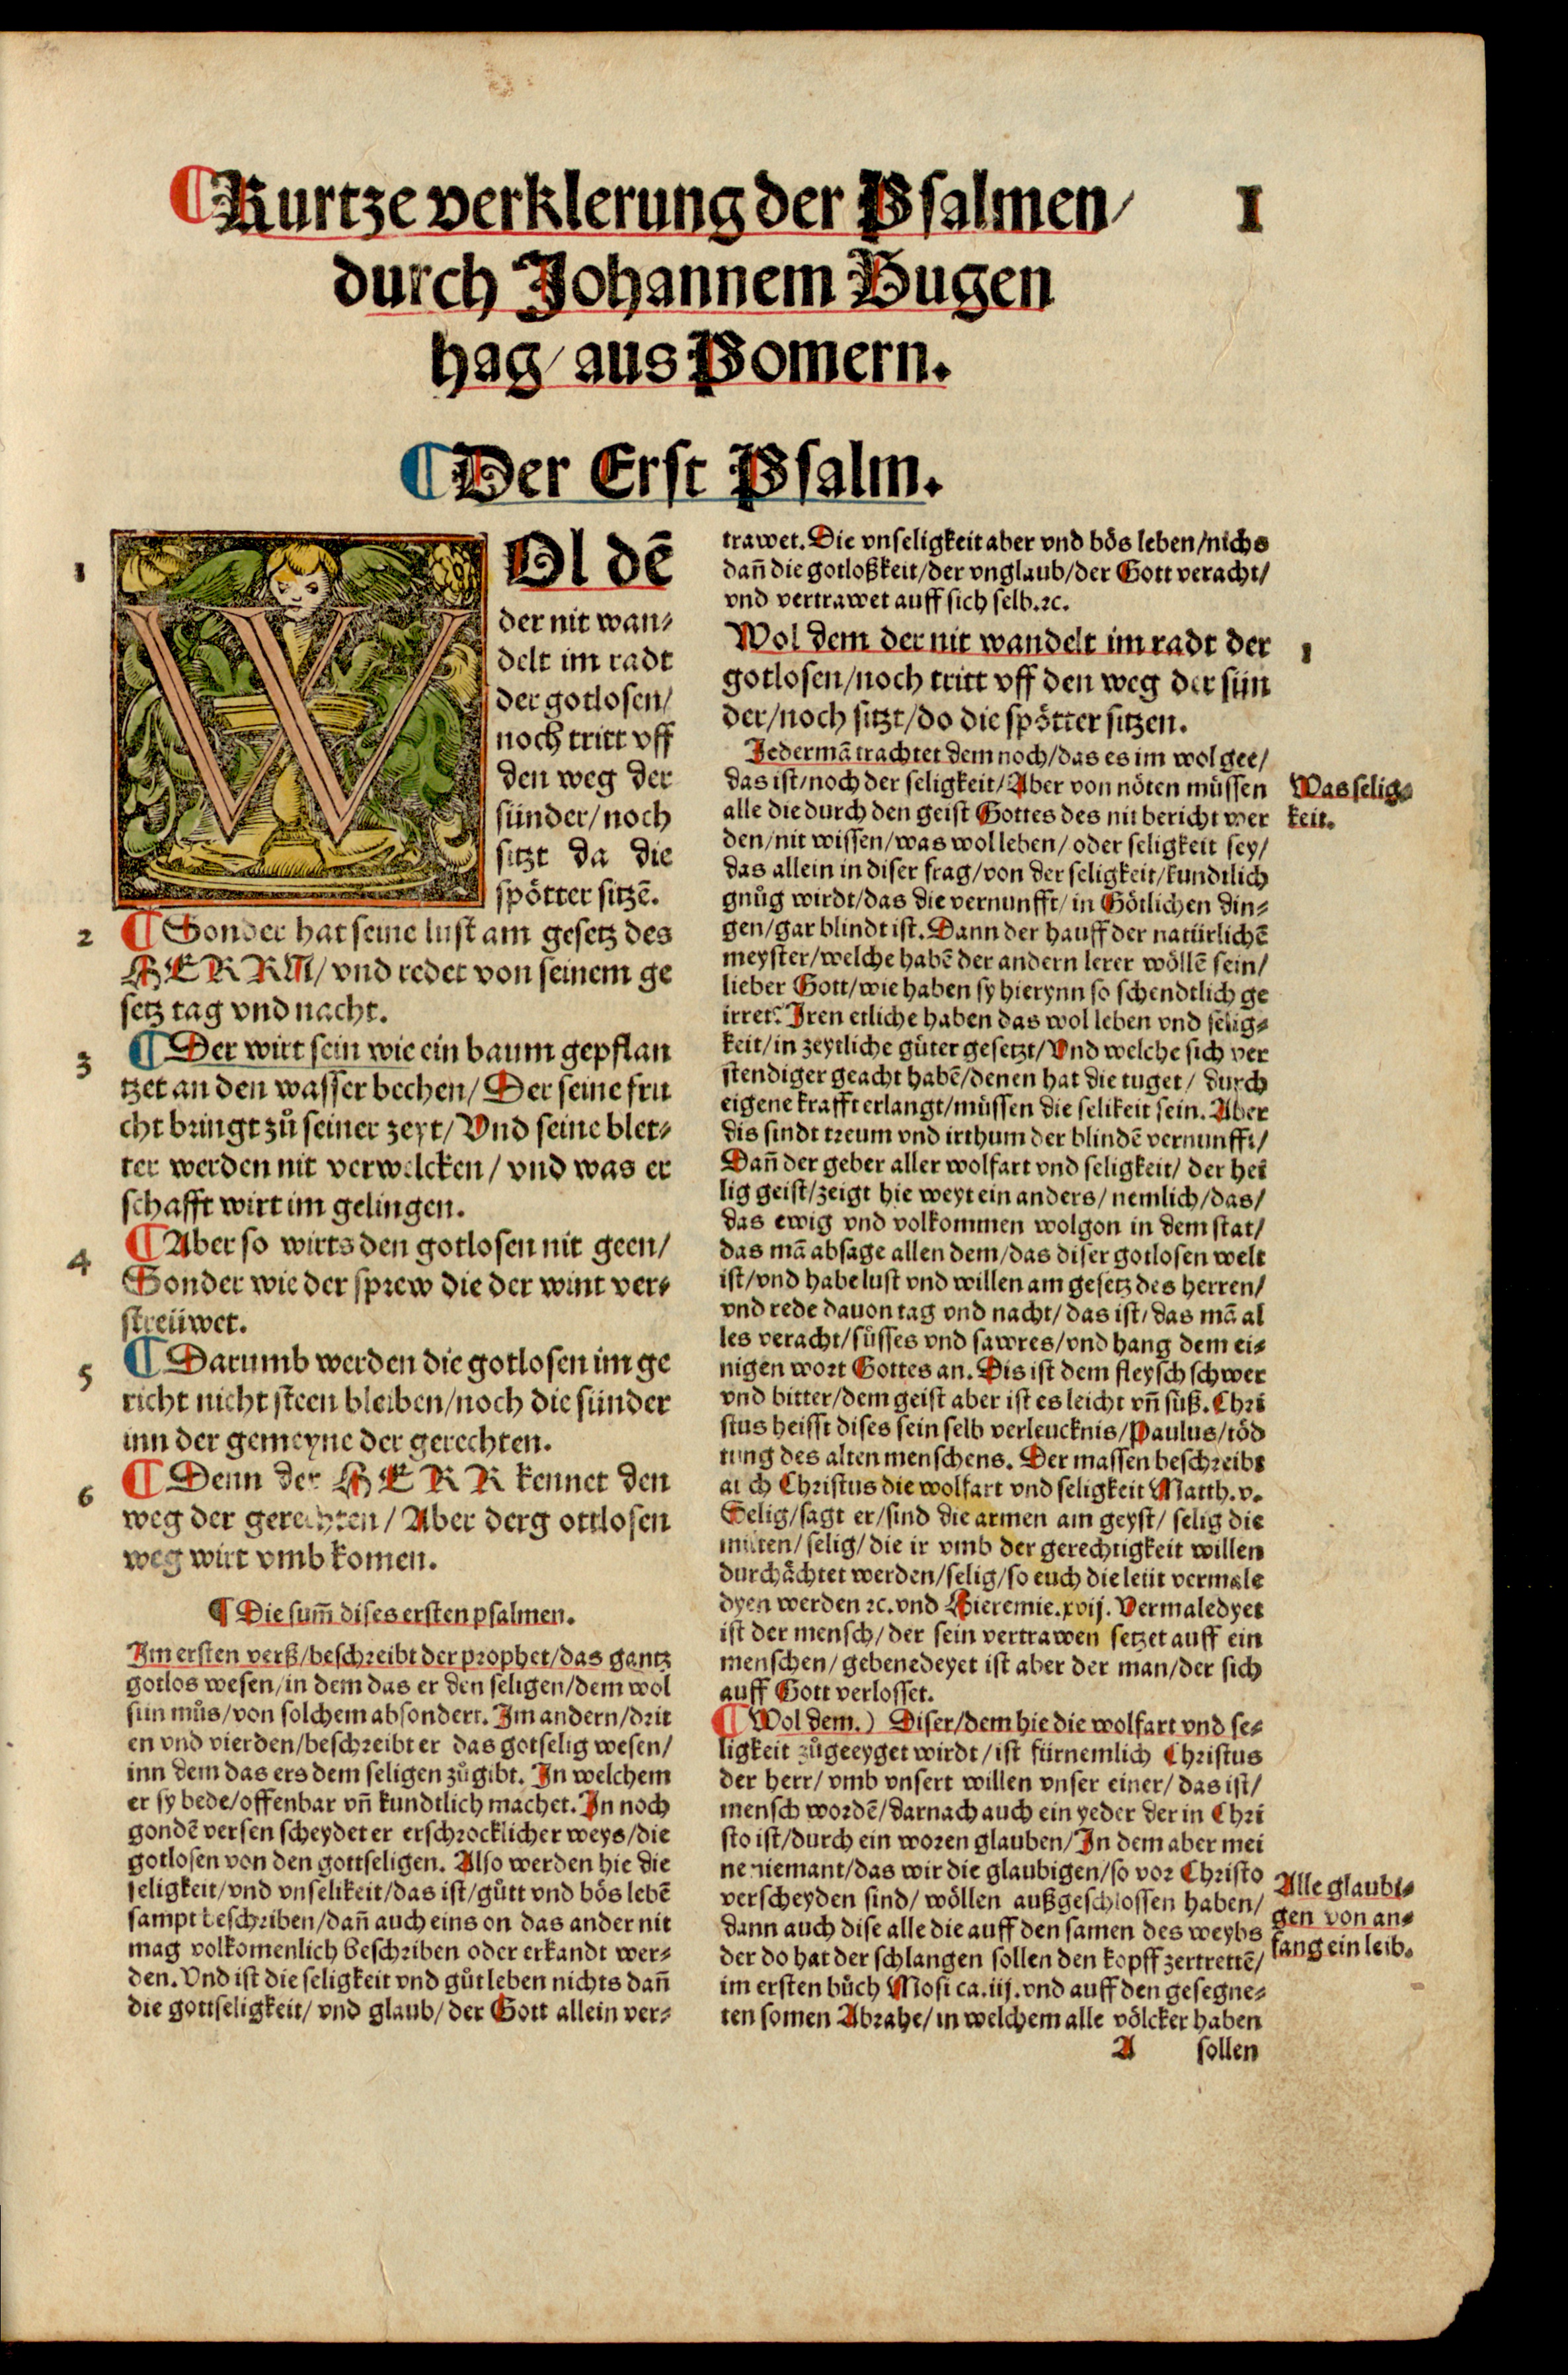 ¶Kurtze verklerung der Psalmen/
I
durch Johannem Bugen
hag/ aus Pomern.
¶Der Erst Psalm.
1
WOl dē
der nit wan⸗
delt im radt
der gotlosen/
noch tritt vff
den weg der
sünder/ noch
sitzt da die
spötter sitzē.
2
¶Sonder hat seine lust am gesetz des
HERRN/ vnd redet von seinem ge
setz tag vnd nacht.
3
¶Der wirt sein wie ein baum gepflan
tzet an den wasser bechen/ Der seine fru
cht bringt zů seiner zeyt/ Vnd seine blet⸗
ter werden nit verwelcken/ vnd was er
schafft wirt im gelingen.
4
¶Aber so wirts den gotlosen nit geen/
Sonder wie der sprew die der wint ver⸗
streüwet.
5
¶Darumb werden die gotlosen im ge
richt nicht steen bleiben/ noch die sünder
inn der gemeyne der gerechten.
6
¶Denn der HERR kennet den
weg der gerechten/ Aber derg ottlosen
weg wirt vmb komen.
¶Die sum̄ dises ersten psalmen.
Im ersten verß/ beschreibt der prophet/ das gantz
gotlos wesen/ in dem das er den seligen/ dem wol
sün můs/ von solchem absondert. Im andern/ drit
en vnd vierden/ beschreibt er das gotselig wesen/
inn dem das ers dem seligen zůgibt. In welchem
er sy bede/ offenbar vn̄ kundtlich machet. In noch
gondē versen scheydet er erschrocklicher weys/ die
gotlosen von den gottseligen. Also werden hie die
seligkeit/ vnd vnselikeit/ das ist/ gůtt vnd bös lebē
sampt beschriben/ dan̄ auch eins on das ander nit
mag volkomenlich beschriben oder erkandt wer⸗
den. Vnd ist die seligkeit vnd gůt leben nichts dan̄
die gottseligkeit/ vnd glaub/ der Gott allein ver⸗
trawet. Die vnseligkeit aber vnd bös leben/ nichs
dan̄ die gotloßkeit/ der vnglaub/ der Gott veracht/
vnd vertrawet auff sich selb. ꝛc.
Wol dem der nit wandelt im radt der
1
gotlosen/ noch tritt vff den weg der sün
der/ noch sitzt/ do die spötter sitzen.
Jedermā trachtet dem noch/ das es im wol gee/
das ist/ noch der seligkeit/ Aber von nöten müssen
Was selig⸗
keit.
alle die durch den geist Gottes des nit bericht wer
den/ nit wissen/ was wol leben/ oder seligkeit sey/
das allein in diser frag/ von der seligkeit/ kundtlich
gnůg wirdt/ das die vernunfft/ in Götlichen din⸗
gen/ gar blindt ist. Dann der hauff der natürlichē
meyster/ welche habē der andern lerer wöllē sein/
lieber Gott/ wie haben sy hierynn so schendtlich ge
irret? Iren etliche haben das wol leben vnd selig⸗
keit/ in zeytliche güter gesetzt/ Vnd welche sich ver
stendiger geacht habē/ denen hat die tuget/ durch
eigene krafft erlangt/ müssen die selikeit sein. Aber
dis sindt treum vnd irthum der blindē vernunfft/
Dan̄ der geber aller wolfart vnd seligkeit/ der hei
lig geist/ zeigt hie weyt ein anders/ nemlich/ das/
das ewig vnd volkommen wolgon in dem stat/
das mā absage allen dem/ das diser gotlosen welt
ist/ vnd habe lust vnd willen am gesetz des herren/
vnd rede dauon tag vnd nacht/ das ist/ das mā al
les veracht/ süsses vnd sawres/ vnd hang dem ei⸗
nigen wort Gottes an. Dis ist dem fleysch schwer
vnd bitter/ dem geist aber ist es leicht vn̄ süß. Chri
stus heisst dises sein selb verleucknis/ Paulus/ töd
tung des alten menschens. Der massen beschreibt
auch Christus die wolfart vnd seligkeit Matth. v.
Selig/ sagt er/ sind die armen am geyst/ selig die
milten/ selig/ die ir vmb der gerechtigkeit willen
durchächtet werden/ selig/ so euch die leüt vermale
dyen werden ꝛc. vnd Hieremie. xvij. Vermaledyet
ist der mensch/ der sein vertrawen setzet auff ein
menschen/ gebenedeyet ist aber der man/ der sich
auff Gott verlosset.
¶Wol dem.) Diser/ dem hie die wolfart vnd se⸗
ligkeit zůgeeyget wirdt/ ist fürnemlich Christus
der herr/ vmb vnsert willen vnser einer/ das ist/
mensch wordē/ darnach auch ein yeder der in Chri
sto ist/ durch ein woren glauben/ In dem aber mei
ne niemant/ das wir die glaubigen/ so vor Christo
verscheyden sind/ wöllen außgeschlossen haben/
Alle glaubi⸗
gen von an⸗
fang ein leib.
dann auch dise alle die auff den samen des weybs
der do hat der schlangen sollen den kopff zertrettē/
im ersten bůch Mosi ca. iij. vnd auff den gesegne⸗
ten somen Abrahe/ in welchem alle völcker haben
A
sollen